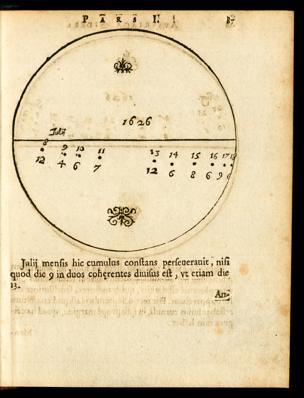 PARS I.
87
1626
Julij
8 9 10 11 13 14 15 16 17 18
12 4 6 7 12 6 8 6 9 6
Julij mensis hic cumulus constans perseuerauit, nisi
quod die 9 in duos coherentes diuisus est, vt etiam die
13.
An-